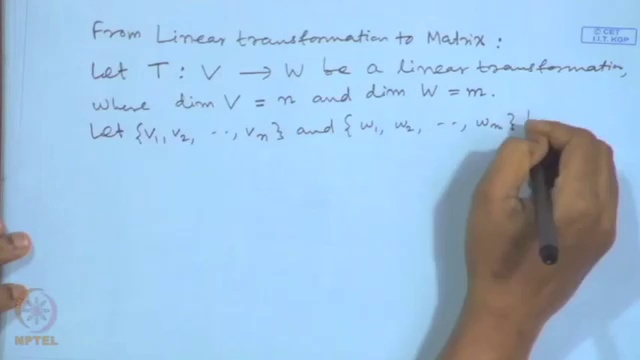 © CET
I.I.T. KGP
From Linear transformation to Matrix :
Let T : V → W be a linear transformation,
where dim V = n and dim W = m.
Let {v₁, v₂, ..., vₙ} and { w₁, w₂, ..., wₘ}
NPTEL